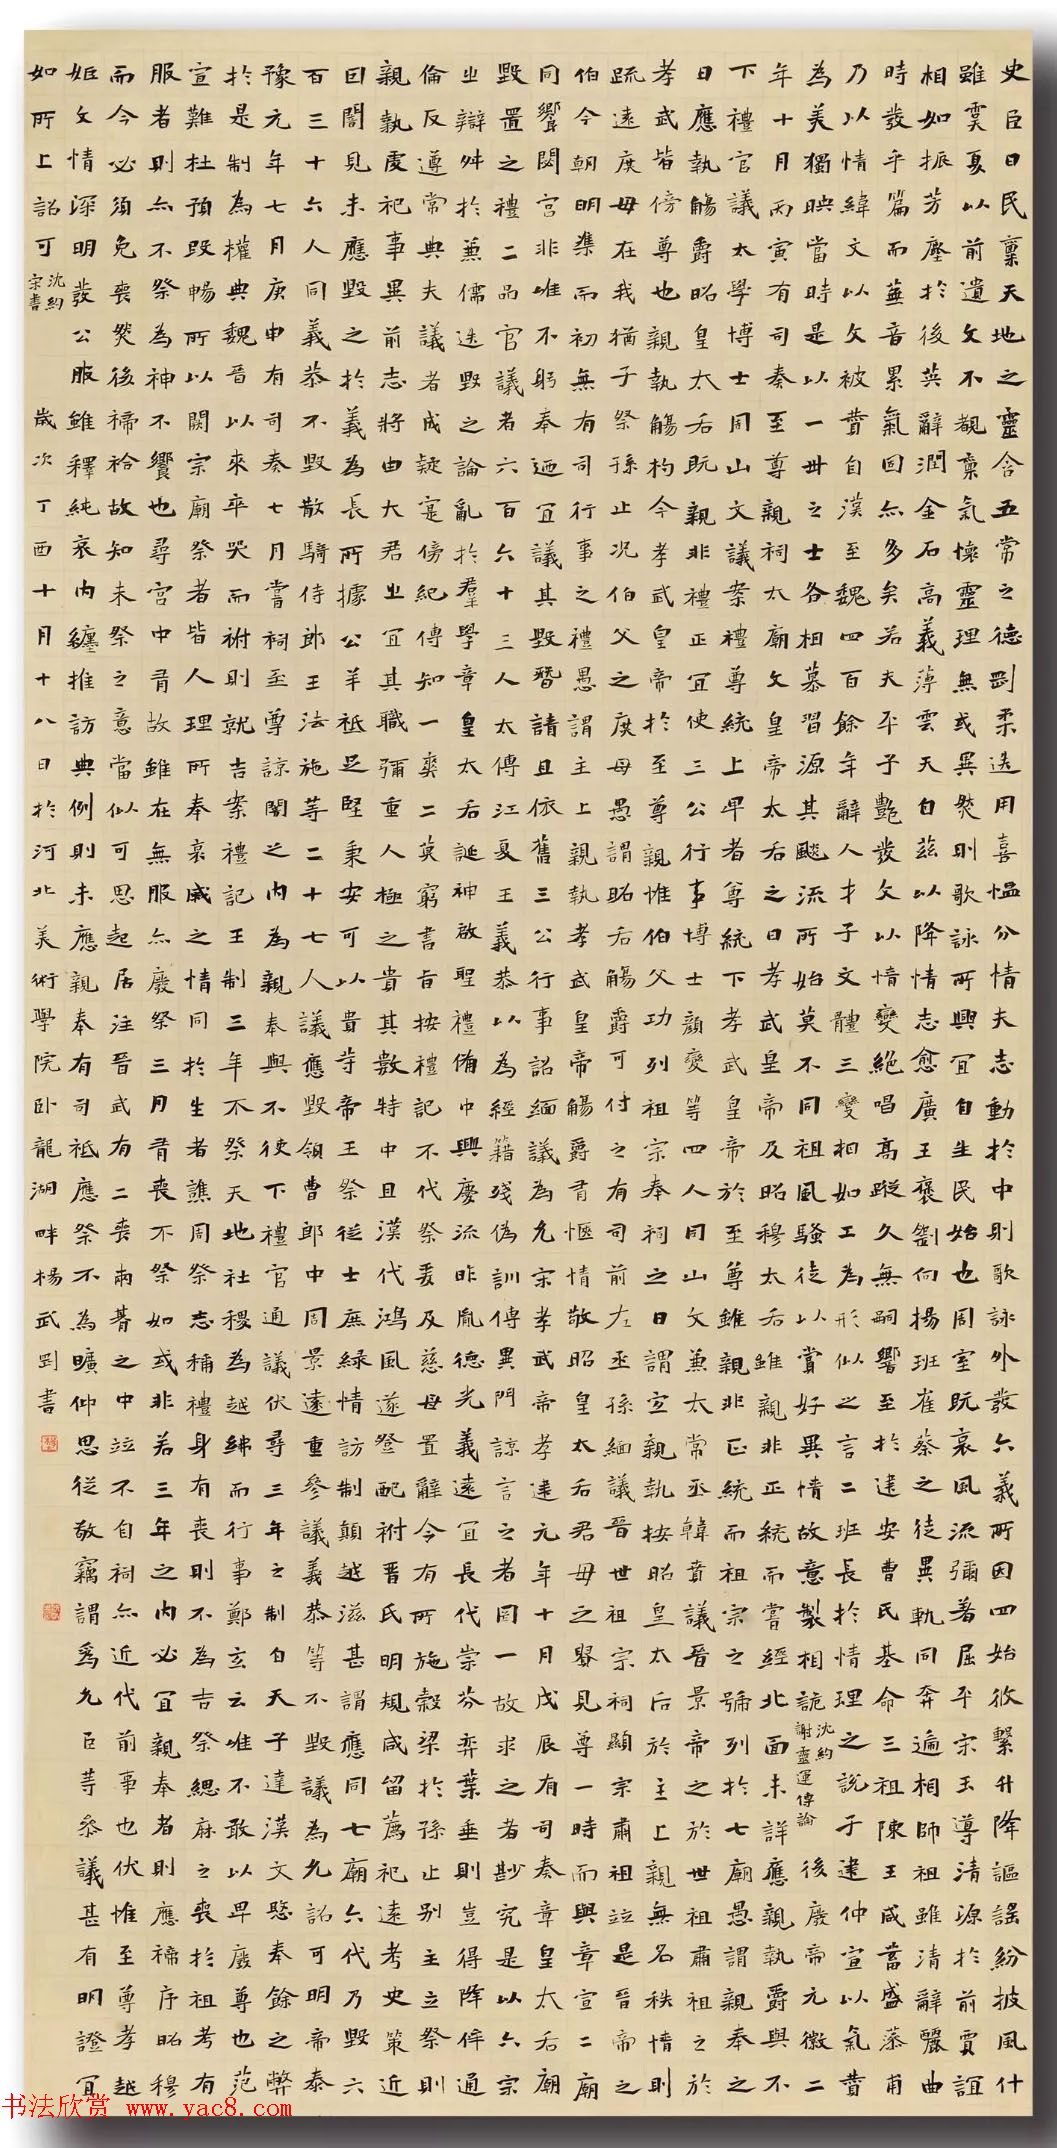 史臣曰民稟天地之靈含五常之德剛柔迭用喜愠分情夫志動於中則歌詠外發六義所因四始攸繫升降謳謠紛披風什
雖虞夏以前遺文不覩稟氣懷靈理無或異然則歌詠所興宜自生民始也周室既衰風流彌著屈平宋玉導清源於前賈誼
相如振芳塵於後英辭潤金石高義薄雲天自茲以降情志愈廣王褒劉向揚班崔蔡之徒異軌同奔遞相師祖雖清辭麗曲
時發乎篇而蕪音累氣固亦多矣若夫平子艷發文以情變絕唱高蹤久無嗣響至於建安曹氏基命三祖陳王咸蓄盛藻甫
乃以情緯文以文被質自漢至魏四百餘年辭人才子文體三變相如工為形似之言二班長於情理之說子建仲宣以氣質
為美獨映當時是以一世之士各相慕習源其飈流所始莫不同祖風騷徒以賞好異情故意製相詭
沈約
謝靈運傳論
後廢帝元徽二
年十月丙寅有司奏至尊親祠太廟文皇帝太后之日孝武皇帝及昭穆太后雖親非正統而嘗經北面未詳應親執爵與不
下禮官議太學博士周山文議案禮尊統上卑者尊統下孝武皇帝於至尊雖親非正統而祖宗之號列於七廟愚謂親奉之
日應執觴爵昭皇太后既親非禮正宜使三公行事博士顏燮等四人同山文兼太常丞韓賁議晉景帝之於世祖肅祖之於
孝武皆傍尊也親執觴杓今孝武皇帝於至尊親惟伯父功列祖宗奉祠之日謂宜親執按昭皇太后於主上親無名秩情則
疏遠庶母在我猶子祭孫止況伯父之庶母愚謂昭后觴爵可付之有司前左丞孫緬議晉世祖宗祠顯宗肅祖並是晉帝之
伯今朝明準而初無有司行事之禮愚謂主上親執孝武皇帝觴爵有愜情敬昭皇太后君母之貴見尊一時而與章宣二廟
同饗閟宮非唯不躬奉迺宜議其毀替請且依舊三公行事詔緬議為允宋孝武帝孝建元年十月戊辰有司奏章皇太后廟
毀置之禮二品官議者六百六十三人太傅江夏王義恭以為經籍殘偽訓傳異門諒言之者罔一故求之者尠究是以六宗
之辯舛於兼儒迭毀之論亂於羣學章皇太后誕神啟聖禮備中興慶流胙胤德光義遠宜長代崇芬奕葉垂則豈得降侔通
倫反遵常典夫議者成疑寔傍紀傳知一爽二莫窮書旨按禮記不代祭爰及慈母置辭令有所施穀梁於孫止別主立祭則
親執虔祀事異前志將由大君之宜其職彌重人極之貴其數特中且漢代鴻風遂登配祔晉氏明規咸留薦祀遠考史策近
因闇見未應毀之於義為長所據公羊祗足堅秉安可以貴等帝王祭從士庶緣情訪制顛越滋甚謂應同七廟六代乃毀六
百三十六人同義恭不毀散騎侍郎王法施等二十七人議應毀領曹郎中周景遠重參議義恭等不毀議為允詔可明帝泰
豫元年七月庚申有司奏七月嘗祠至尊諒闇之內為親奉與不使下禮官通議伏尋三年之制自天子達漢文愍奉餘之弊
於是制為權典魏晉以來卒哭而祔則就吉案禮記王制三年不祭天地社稷為越紼而行事鄭玄云唯不敢以卑廢尊也范
宣難杜預段暢所以闕宗廟祭者皆人理所奉哀戚之情同於生者譙周祭志稱禮身有喪則不為吉祭緦麻之喪於祖考有
服者則亦不祭為神不饗也尋宮中有故雖在無服亦廢祭三月有喪不祭如或非若三年之內必宜親奉者則應禘序昭穆
而今必須免喪然後禘祫故知未祭之意當似可思起居注晉武有二喪兩朞之中並不自祠亦近代前事也伏惟至尊孝越
姬文情深明發公服雖釋純哀內纏推訪典例則未應親奉有司祗應祭不為曠仰思從敬竊謂為允臣等參議甚有明證宜
如所上詔可
沈約
宋書
歲次丁酉十月十八日於河北美術學院臥龍湖畔楊武剛書
书法欣赏 www.yac8.com